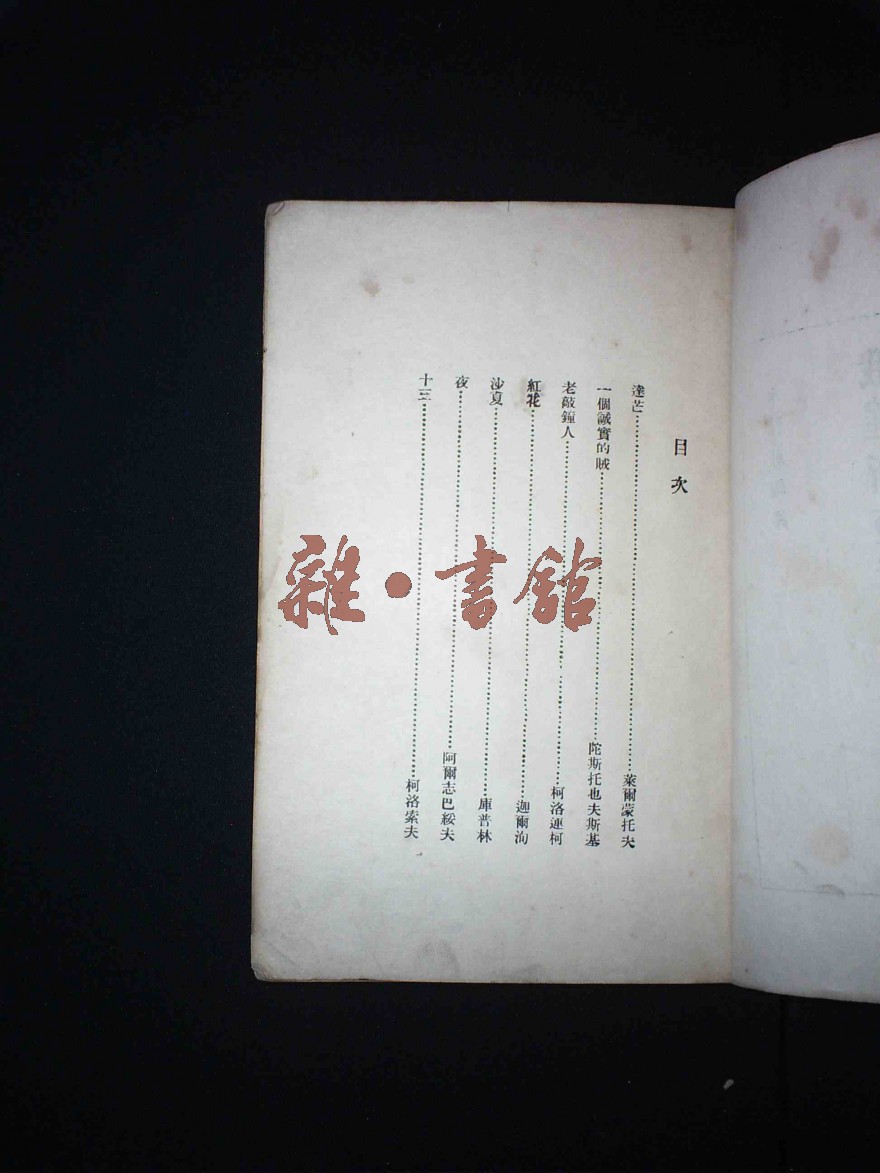 目次
達芒……萊爾蒙托夫
一個誠實的賊……陀斯托也夫斯基
老敲鐘人……柯洛連柯
紅花……迦爾洵
沙夏……庫普林
夜……阿爾志巴綏夫
十三……柯洛索夫
雜·書館